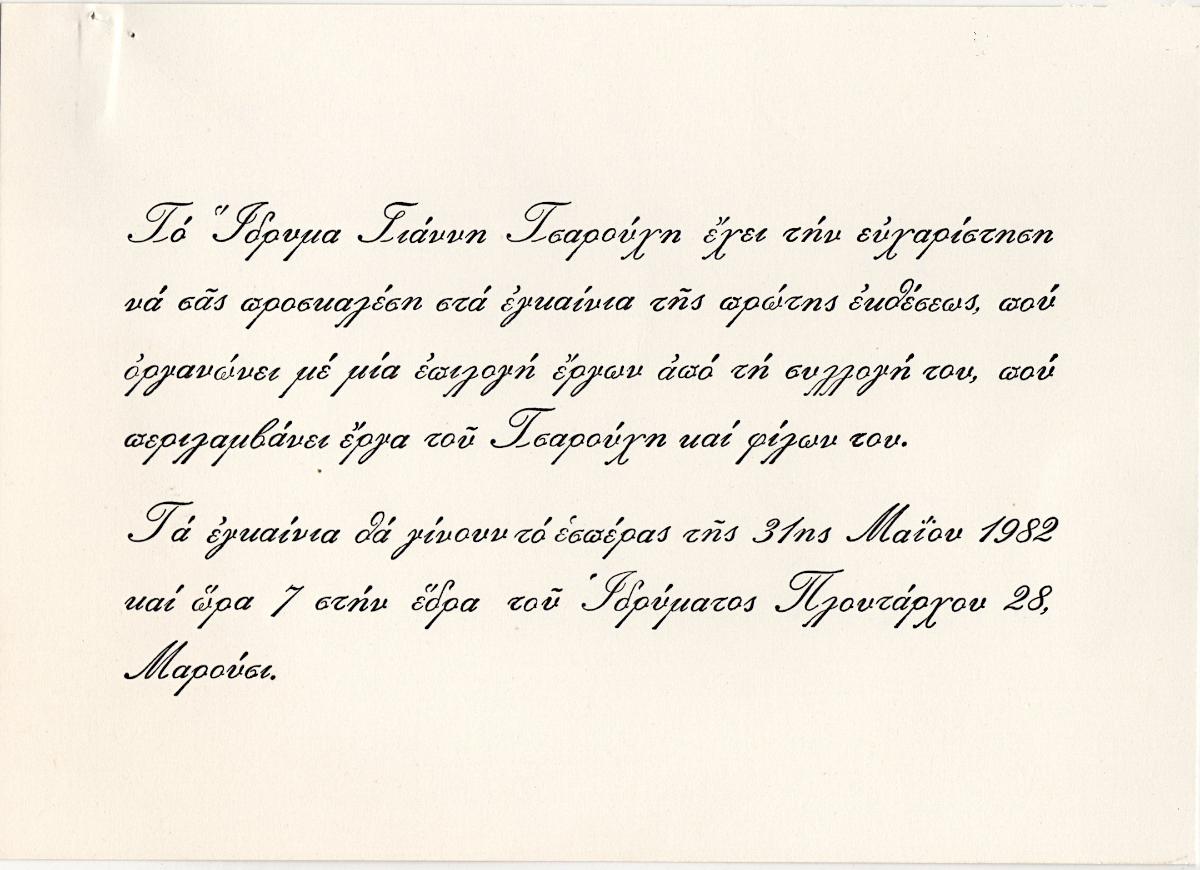 Τό Ἵδρυμα Γιάννη Τσαρούχη ἔχει τήν εὐχαρίστηση
νά σᾶς προσκαλέση στά ἐγκαίνια τῆς πρώτης ἐκθέσεως, πού
ὀργανώνει μέ μία ἐπιλογή ἔργων ἀπό τή συλλογή του, πού
περιλαμβάνει ἔργα τοῦ Τσαρούχη καί φίλων του.
Τά ἐγκαίνια θά γίνουν τό ἑσπέρας τῆς 31ης Μαΐου 1982
καί ὥρα 7 στήν ἕδρα τοῦ Ἱδρύματος Πλουτάρχου 28,
Μαρούσι.